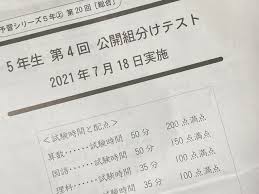 予習シリーズ5年上 第20回〔総合〕
5年生 第4回 公開組分けテスト
2021年7月18日実施
<試験時間と配点>
算数……試験時間 50分 200点満点
国語……試験時間 50分 150点満点
理科……試験時間 35分 100点満点
試験時間 35分 100点満点